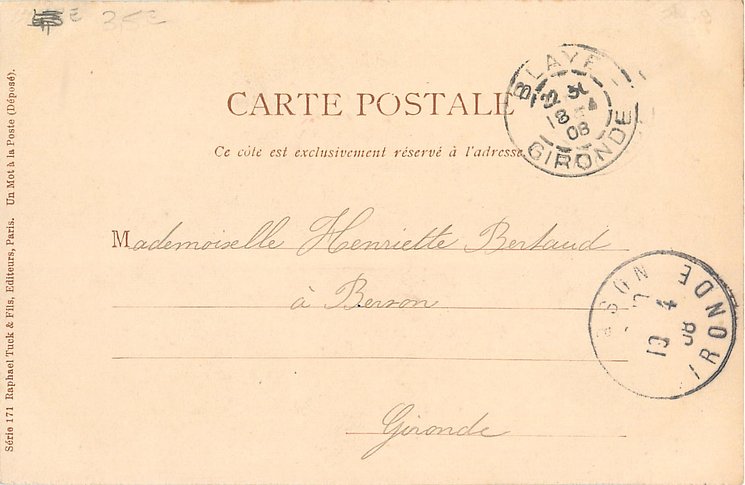 35E
CARTE POSTALE
Ce côté est exclusivement réservé à l'adresse.
BLAYE
08
GIRONDE
Mademoiselle Henriette Bertaud
à Berson
Gironde
SON
GIRONDE
08
Série 171 Raphael Tuck & Fils, Editeurs, Paris. Un Mot à la Poste (Déposé).